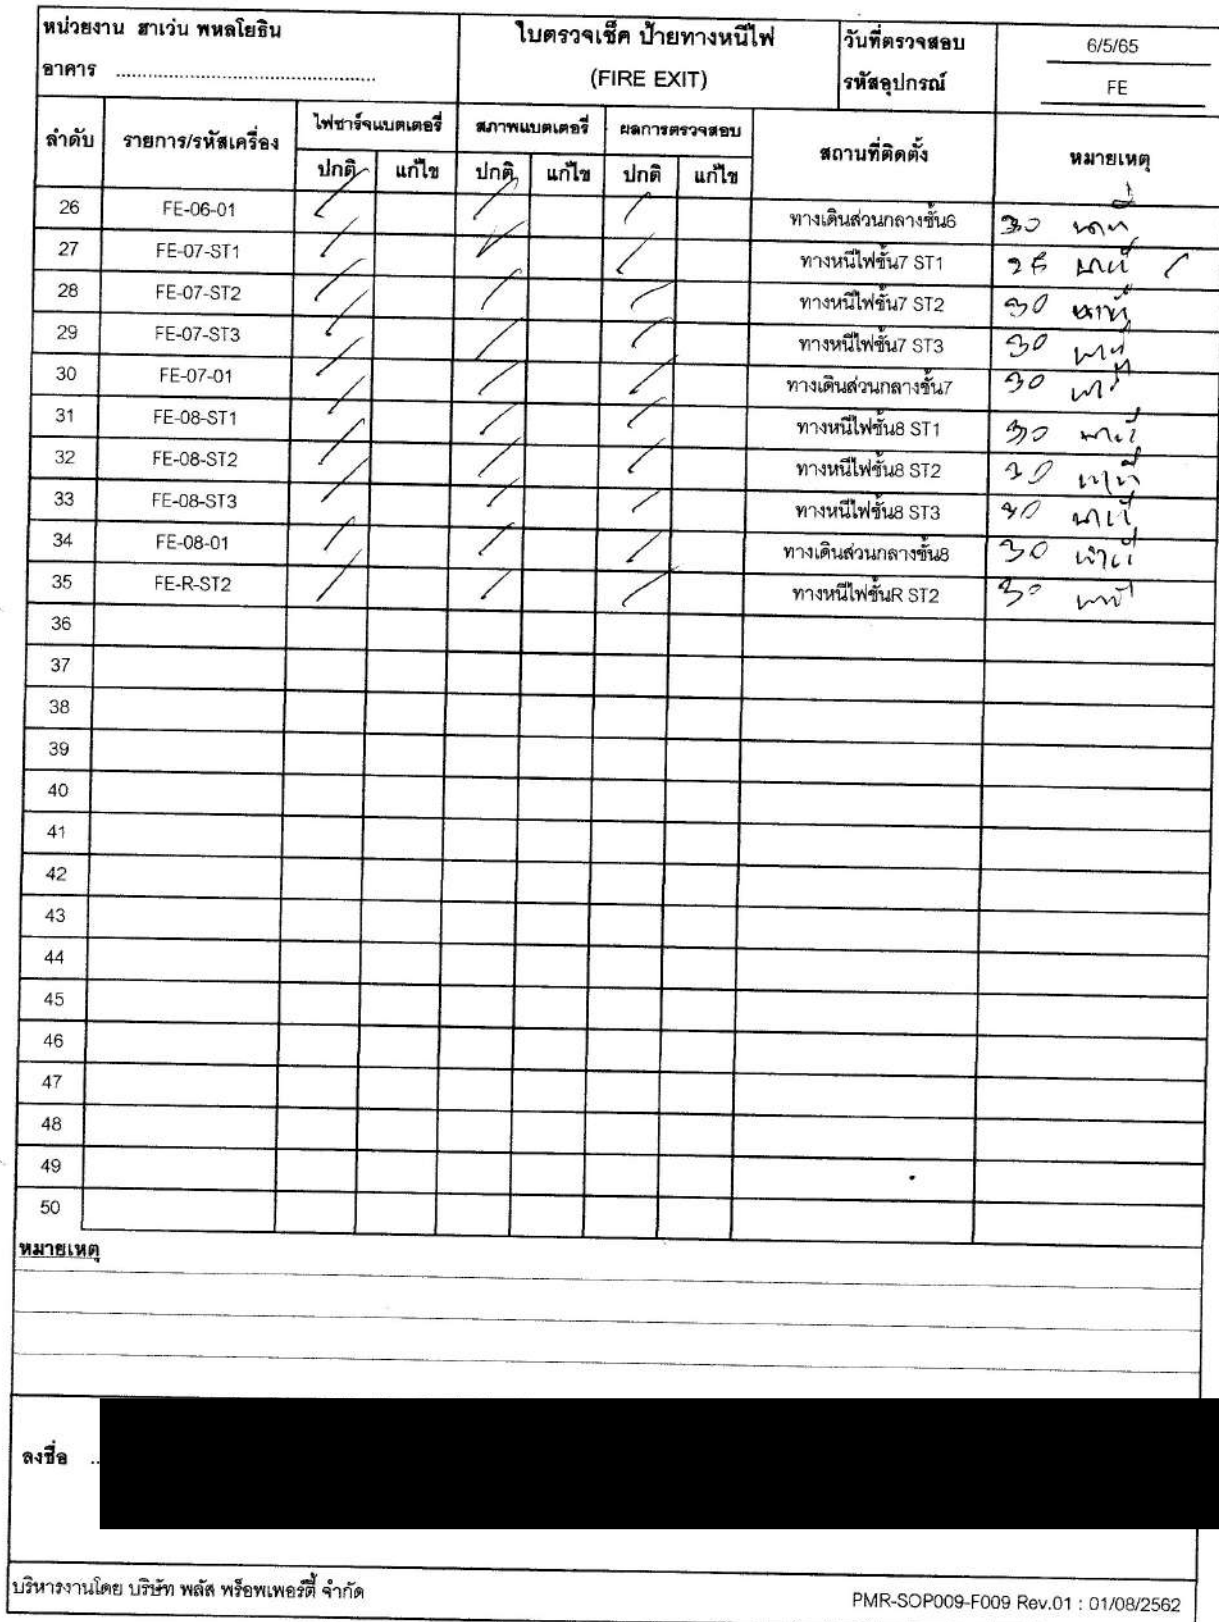 หน่วยงาน ฮาเว่น พหลโยธิน
อาคาร ................................................
ใบตรวจเช็ค ป้ายทางหนีไฟ
(FIRE EXIT)
วันที่ตรวจสอบ 6/5/65
รหัสอุปกรณ์ FE
ลำดับ รายการ/รหัสเครื่อง ไฟชาร์จแบตเตอรี่ สภาพแบตเตอรี่ ผลการตรวจสอบ สถานที่ติดตั้ง หมายเหตุ
ปกติ แก้ไข ปกติ แก้ไข ปกติ แก้ไข
26 FE-06-01 / / / ทางเดินส่วนกลางชั้น6 30 นาที
27 FE-07-ST1 / / / ทางหนีไฟชั้น7 ST1 นาที
28 FE-07-ST2 / / / ทางหนีไฟชั้น7 ST2 30 นาที
29 FE-07-ST3 / / / ทางหนีไฟชั้น7 ST3 30 นาที
30 FE-07-01 / / / ทางเดินส่วนกลางชั้น7 30 นาที
31 FE-08-ST1 / / / ทางหนีไฟชั้น8 ST1 30 นาที
32 FE-08-ST2 / / / ทางหนีไฟชั้น8 ST2 นาที
33 FE-08-ST3 / / / ทางหนีไฟชั้น8 ST3 นาที
34 FE-08-01 / / / ทางเดินส่วนกลางชั้น8 30 นาที
35 FE-R-ST2 / / / ทางหนีไฟชั้นR ST2 30 นาที
36
37
38
39
40
41
42
43
44
45
46
47
48
49
50
หมายเหตุ
ลงชื่อ ..
บริหารงานโดย บริษัท พลัส พร็อพเพอร์ตี้ จำกัด
PMR-SOP009-F009 Rev.01 : 01/08/2562